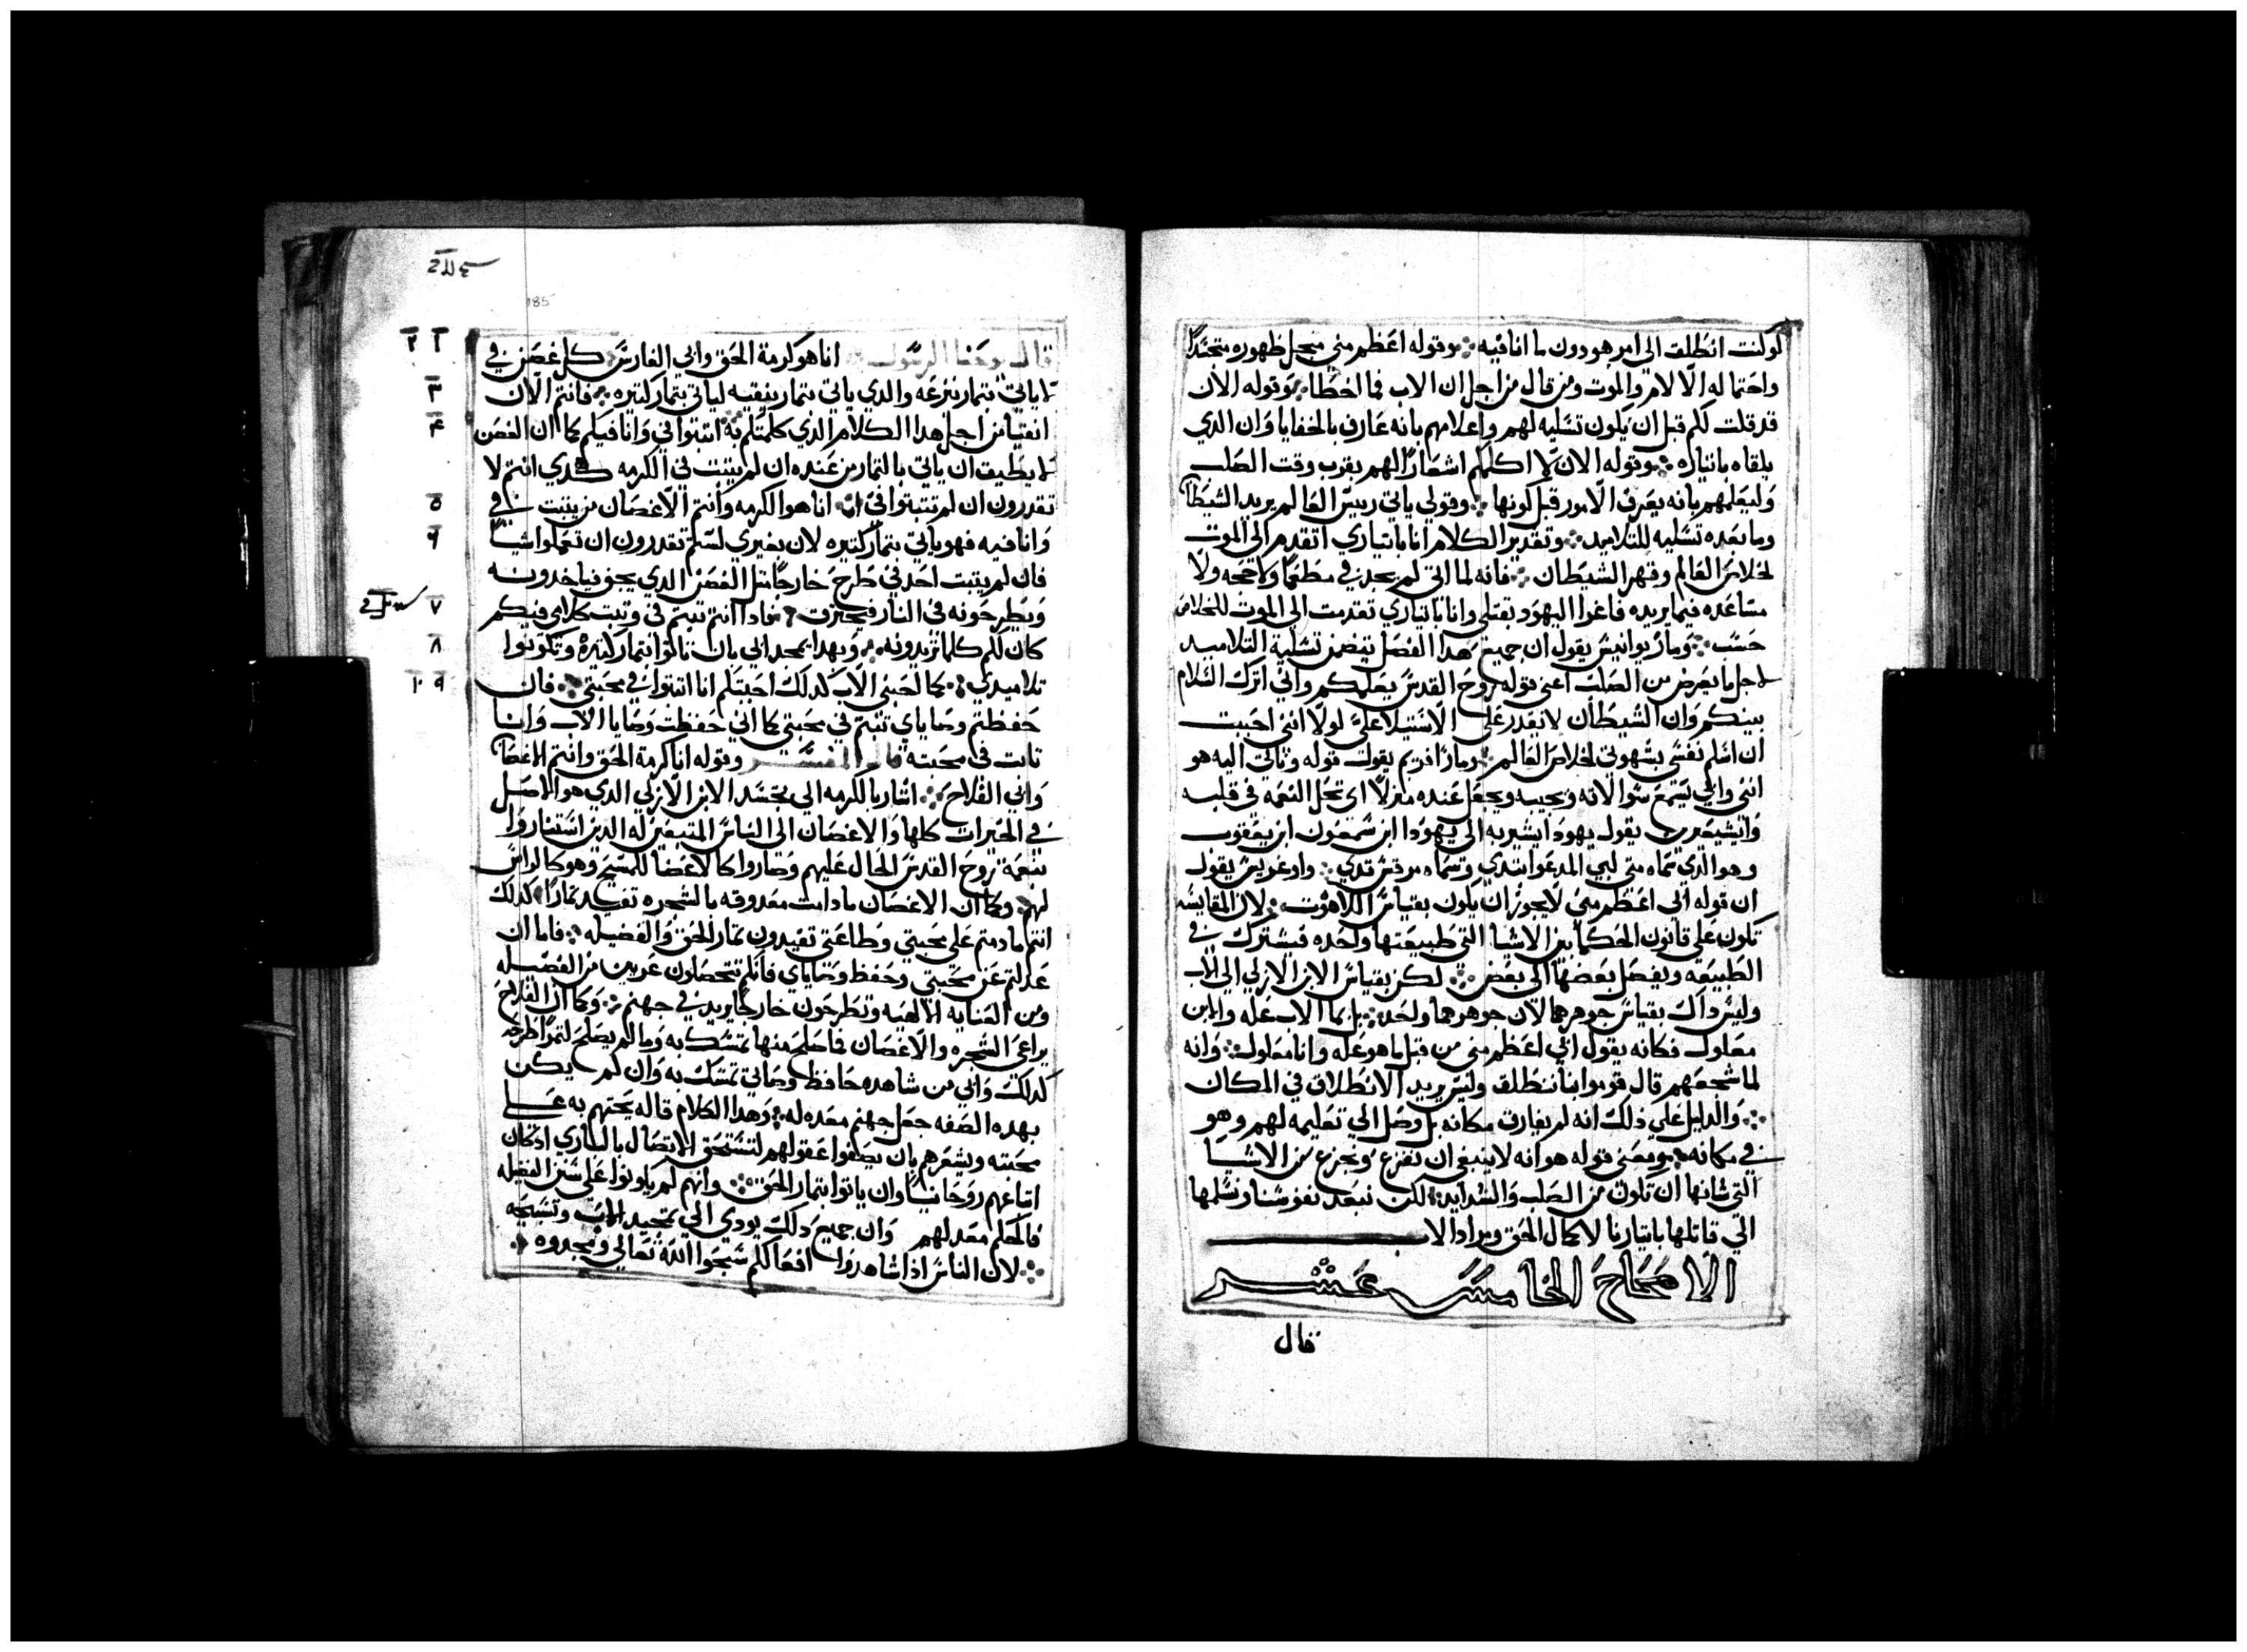 كولنت انطلق الى امر هو دون ما انا فيه وقوله اعظم مني من جل ظهوره متجسدا
واحتماله الالام والموت ومن قال من اجل ان الاب فما اخطا وقوله الان
قد قلت لكم قبل ان يكون تسليه لهم واعلامهم بانه عارف بالخفايا وان الذي
يلقاه باتياره وقوله الان لا اكلمكم اشعارا لهم بقرب وقت الصلب
وليعلمهم بانه يعرف الامور قبل كونها وقولي ياتي رييس العالم يريد الشيطان
وما بعده تسليه للتلاميد وتقدير الكلام انا باتياري اتقدم الى الموت
لخلاص العالم وقهر الشيطان فانه لما اتى لم يجد في مطعما ولا حجه ولا
مساعده فيما يريده فاغوا اليهود بقتلي وانا باتياري تقدمت الى الموت للخلاص
حسب ومار يوانيس يقول ان جميع هدا الفصل يتضمن تسلية التلاميد
لاجل ما يعرض من الصلب اعني قوله روح القدس يعلمكم واني اترك السلام
بينكم وان الشيطان لا يقدر على الاستيلا علي لولا انني احببت
ان اسلم نفسي بشهوتي لخلاص العالم ومار افريم يقول قوله وناتي اليه هو
انني وابي يسمع سوالاته ويجيبه ويجعل عنده منزلا اي تحل النعمه في قلبه
يقول يهودا يشير به الى يهودا ابن شمعون ابن يعقوب
وهو الدي سماه متى لبي المدعوا تدي وسماه مرقس تدي واوغريس يقول
ان قوله ابي اعظم مني لا يجوز ان يكون بقياس اللاهوت لان المقايسه
تكون على قانون الحكما بين الاشيا التي طبيعتها واحده فيشترك في
الطبيعه ويفصل بعضها الى بعض لكن بقياس الابن الازلي الى الاب
وليس داك بقياس جوهرهما لان جوهرهما واحد بل بما الاب عله والابن
معلول فكانه يقول ابي اعظم مني من قبل ما هو عله وانا معلول وانه
لما شجعهم قال قوموا بنا ننطلق وليس يريد الانطلاق في المكان
والدليل على ذلك انه لم يفارق مكانه بل وصل الي تعليمه لهم وهو
في مكانه ومعنى قوله هو انه لا ينبغي ان نفزع ونجزع من الاشيا
التي شانها ان تكون من الصلب والشدايد لكن نبعد نفوسنا ونسلمها
الي قاتلها باتيارنا لاكمال الحق ومراد الاب
الاصحاح الخامس عشر
قال
185
قال يوحنا الرسول انا هو كرمة الحق وابي الغارس كل غصن في
لا ياتي بتمار ننزعه والدي ياتي بتمار ينقيه لياتي بتمار كتيره فانتم الان
انقيا من اجل هدا الكلام الذي كلمتكم به اتبتوا في وانا فيكم كما ان الغصن
لا يطيق ان ياتي بالتمار من عنده ان لم يتبت في الكرمه كدي انتم لا
تقدرون ان لم تتبتوا في انا هو الكرمه وانتم الاغصان من يتبت في
وانا فيه فهو ياتي بتمار كتيره لان بغيري لستم تقدرون ان تعملوا شيا
فان لم يتبت احد في طرح خارجا متل الغصن الدي يجف فياخدونه
ويطرحونه في النار فيحترق فادا انتم تبتم في وتبت كلامي فيكم
كان لكم كلما تريدونه وبهدا يمجد ابي بان تاتوا بتمار كتيره وتكونوا
تلاميدي كما احبني الاب كدلك احببتكم انا اتبتوا في محبتي فان
حفظتم وصاياي تتبتم في محبتي كما اني حفظت وصايا الاب وانا
تابت في محبته قال المفسر وقوله انا كرمة الحق وانتم الاغصان
وابي الفلاح اشار بالكرمه الي تجسد الابن الازلي الدي هو الاصل
في الخيرات كلها والاغصان الى الناس المتبعين له الدين استناروا
بنعمة روح القدس الحال عليهم وصاروا كالاعضا للمسيح وهو كالراس
لهم وكما ان الاغصان ما دامت معروقه بالشجره تفيد تمارا كدلك
انتم ما دمتم على محبتي وطاعتي تفيدون تمار الحق والفضيله فاما ان
عدلتم عن محبتي وحفظ وصاياي فانكم تتحصلون عريين من الفضيله
ومن العنايه الالهيه وتطرحون خارجا يريد في جهنم وكما ان الفلاح
يراعي الشجره والاغصان فما صلح منها تمسك به وما لم يصلح لتمر اطرحه
كدلك وابي من شاهده حافظ وصاتي تمسك به وان لم يكن
بهده الصفه جعل جهنم معده له وهدا الكلام قاله يحتهم به على
محبته ويشعرهم بان يصفوا عقولهم لتستحق الاتصال بالباري ادكان
اتباعهم روحانيا وان ياتوا بتمار الحق وانهم لم يكونوا على سنن الفضيله
فالحكم معد لهم وان جميع دلك يودي الي تمجيد الاب وتسبيحه
لان الناس اذا شاهدوا افعالكم سبحوا الله تعالي ومجدوه
١ ٢
٣
٤
٥
٦
٧
٨
٩ ١٠